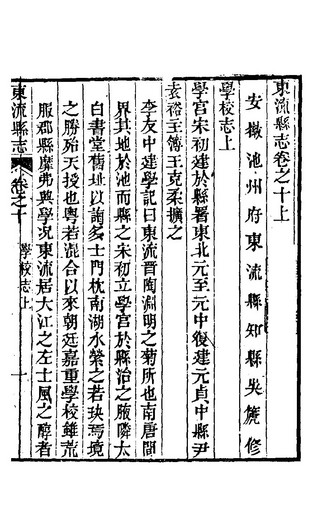 東流縣志卷之十上
安徽池州府東流縣知縣吳篪修
學校志上
學宮宋初建於縣署東北元至元中復建元貞中縣尹
袁裕主簿王克柔擴之
李友中建學記曰東流晋陶淵明之菊所也南唐間
界其地於池而縣之宋初立學宮於縣治之腋隣太
白書堂舊址以詢多士門枕南湖水縈之若玦焉境
之勝殆天授也粤若混合以來朝廷嘉重學校雖荒
服郡縣靡弗興學況東流居大江之左士風之醇者
東流縣志
卷之十
學校志上
一